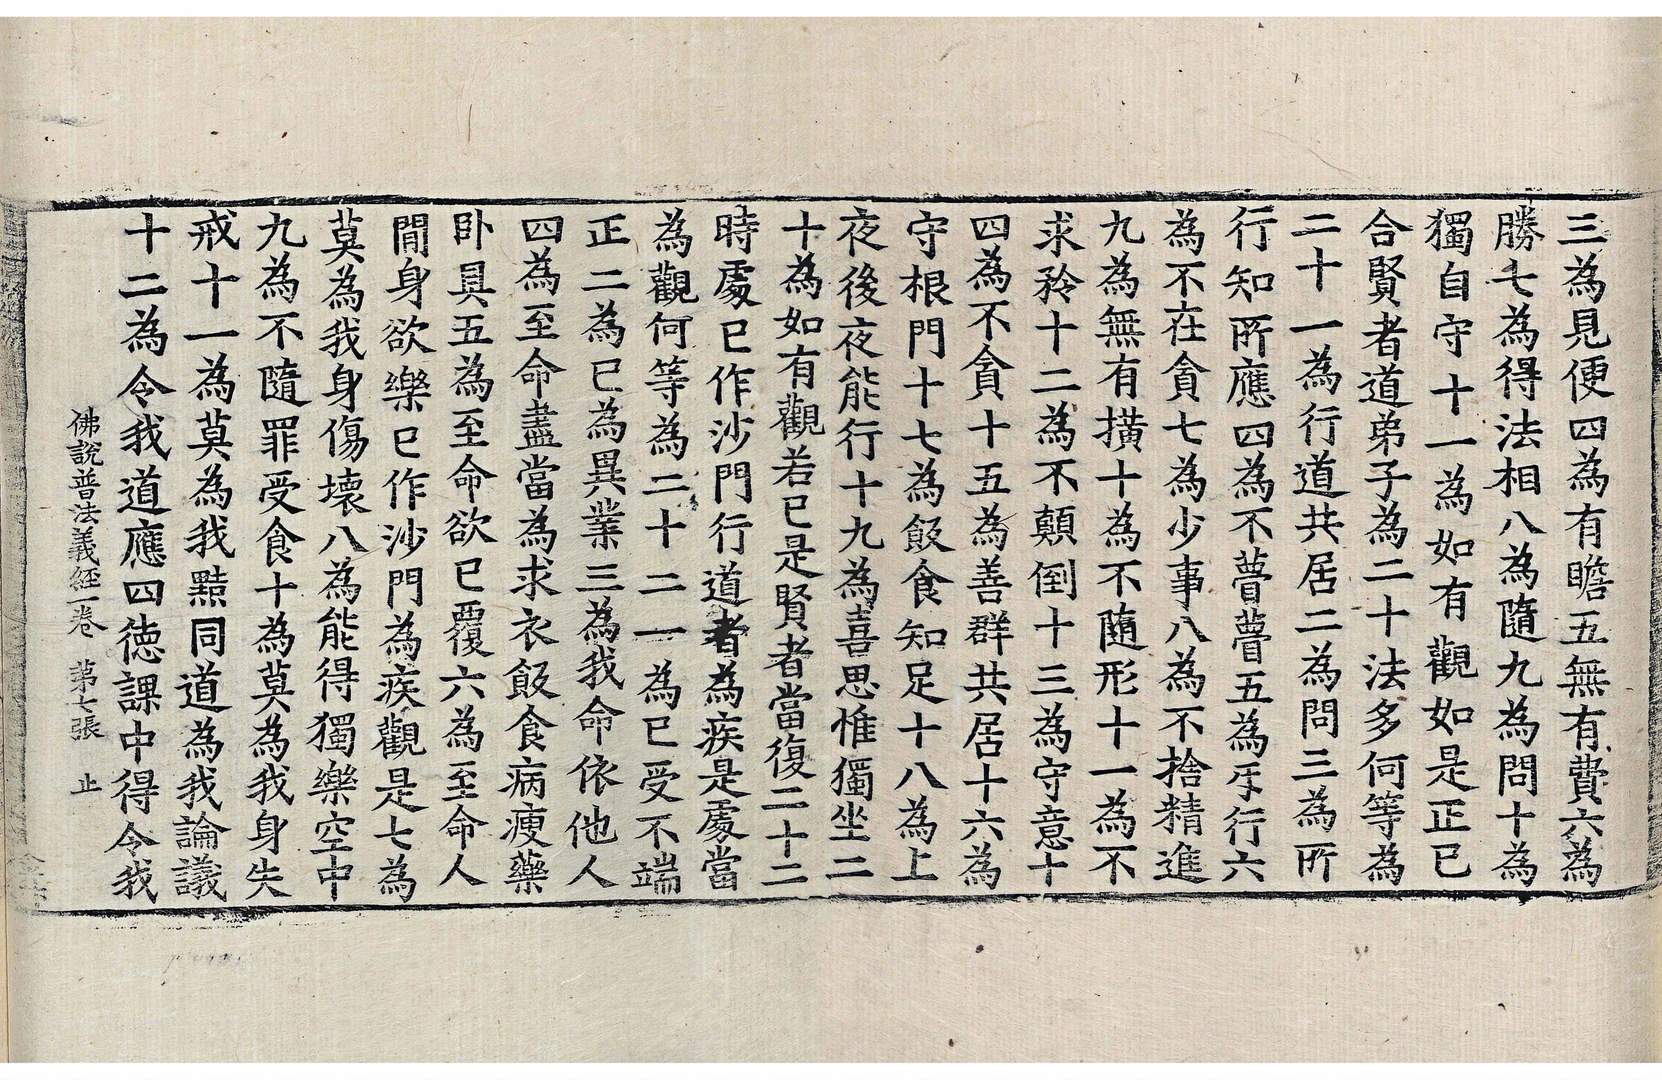 三為見便四為有瞻五無有費六為
勝七為得法相八為隨九為問十為
獨自守十一為如有觀如是正已
合賢者道弟子為二十法多何等為
二十一為行道共居二為問三為所
行知所應四為不瞢瞢五為𤓰行六
為不在貪七為少事八為不捨精進
九為無有橫十為不隨形十一為不
求矜十二為不顛倒十三為守意十
四為不貪十五為善群共居十六為
守根門十七為飯食知足十八為上
夜後夜能行十九為喜思惟獨坐二
十為如有觀若已是賢者當復二十二
時處已作沙門行道者為疾是處當
為觀何等為二十二一為已受不端
正二為已為異業三為我命依他人
四為至命盡當為求衣飯食病瘦藥
卧具五為至命欲已覆六為至命人
閒身欲樂已作沙門為疾觀是七為
莫為我身傷壞八為能得獨樂空中
九為不隨罪受食十為莫為我身失
戒十一為莫為我黠同道為我論議
十二為令我道應四德課中得令我
佛說普法義經一卷 第七張 止